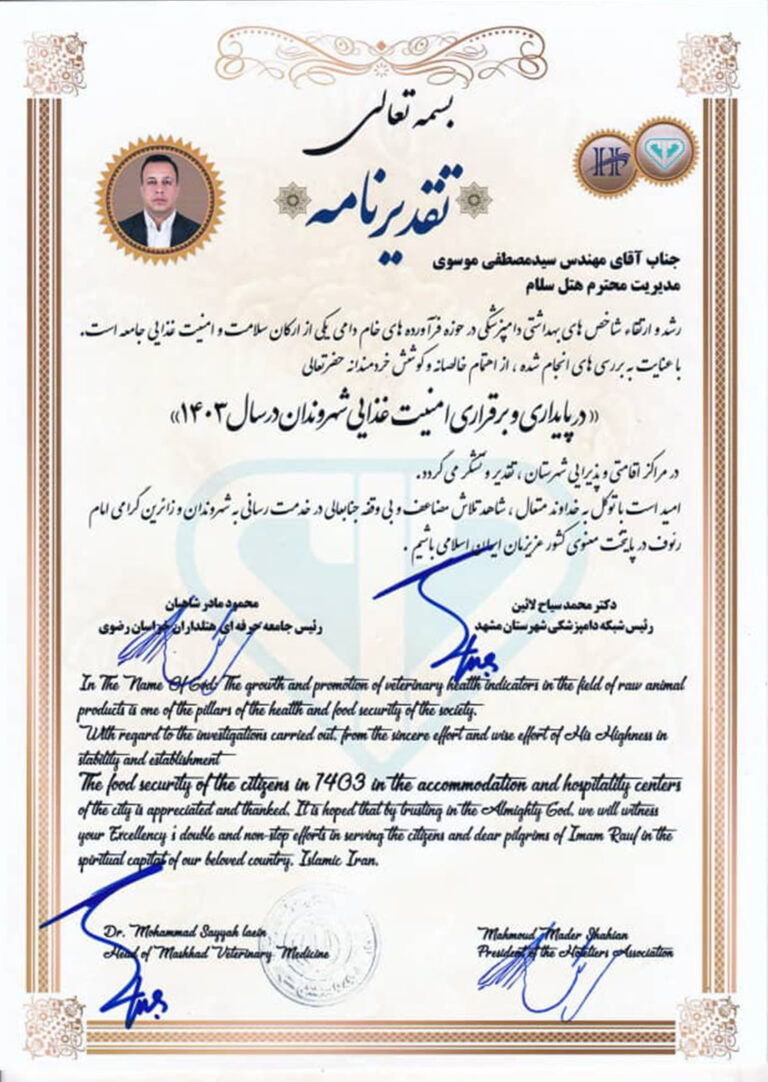 بسمه تعالی
تقدیرنامه
جناب آقای مهندس سیدمصطفی موسوی
مدیریت محترم هتل سلام
رشد و ارتقاء شاخص های بهداشتی دامپزشکی در حوزه فرآورده های خام دامی یکی از ارکان سلامت و امنیت غذایی جامعه است.
با عنایت به بررسی های انجام شده ، از اهتمام خالصانه و کوشش خردمندانه حضرتعالی
«در پایداری و برقراری امنیت غذایی شهروندان در سال ۱۴۰۳»
در مراکز اقامتی و پذیرایی شهرستان ، تقدیر و تشکر می گردد.
امید است با توکل به خداوند متعال ، شاهد تلاش مضاعف و بی وقفه جنابعالی در خدمت رسانی به شهروندان و زائرین گرامی امام
رئوف در پایتخت معنوی کشور عزیزمان ایران اسلامی باشیم .
دکتر محمد سیاح لائین
رئیس شبکه دامپزشکی شهرستان مشهد
محمود مادرشاهیان
رئیس جامعه حرفه ای هتلداران خراسان رضوی
In The Name Of God: The growth and promotion of veterinary health indicators in the field of raw animal
products is one of the pillars of the health and food security of the society.
With regard to the investigations carried out, from the sincere effort and wise effort of His Highness in
stability and establishment
The food security of the citizens in 1403 in the accommodation and hospitality centers
of the city is appreciated and thanked. It is hoped that by trusting in the Almighty God, we will witness
your Excellency's double and non-stop efforts in serving the citizens and dear pilgrims of Imam Rauf in the
spiritual capital of our beloved country, Islamic Iran.
Dr. Mohammad Sayyah laein
Head of Mashhad Veterinary Medicine
Mahmoud Mader Shahian
President of the Hoteliers Association